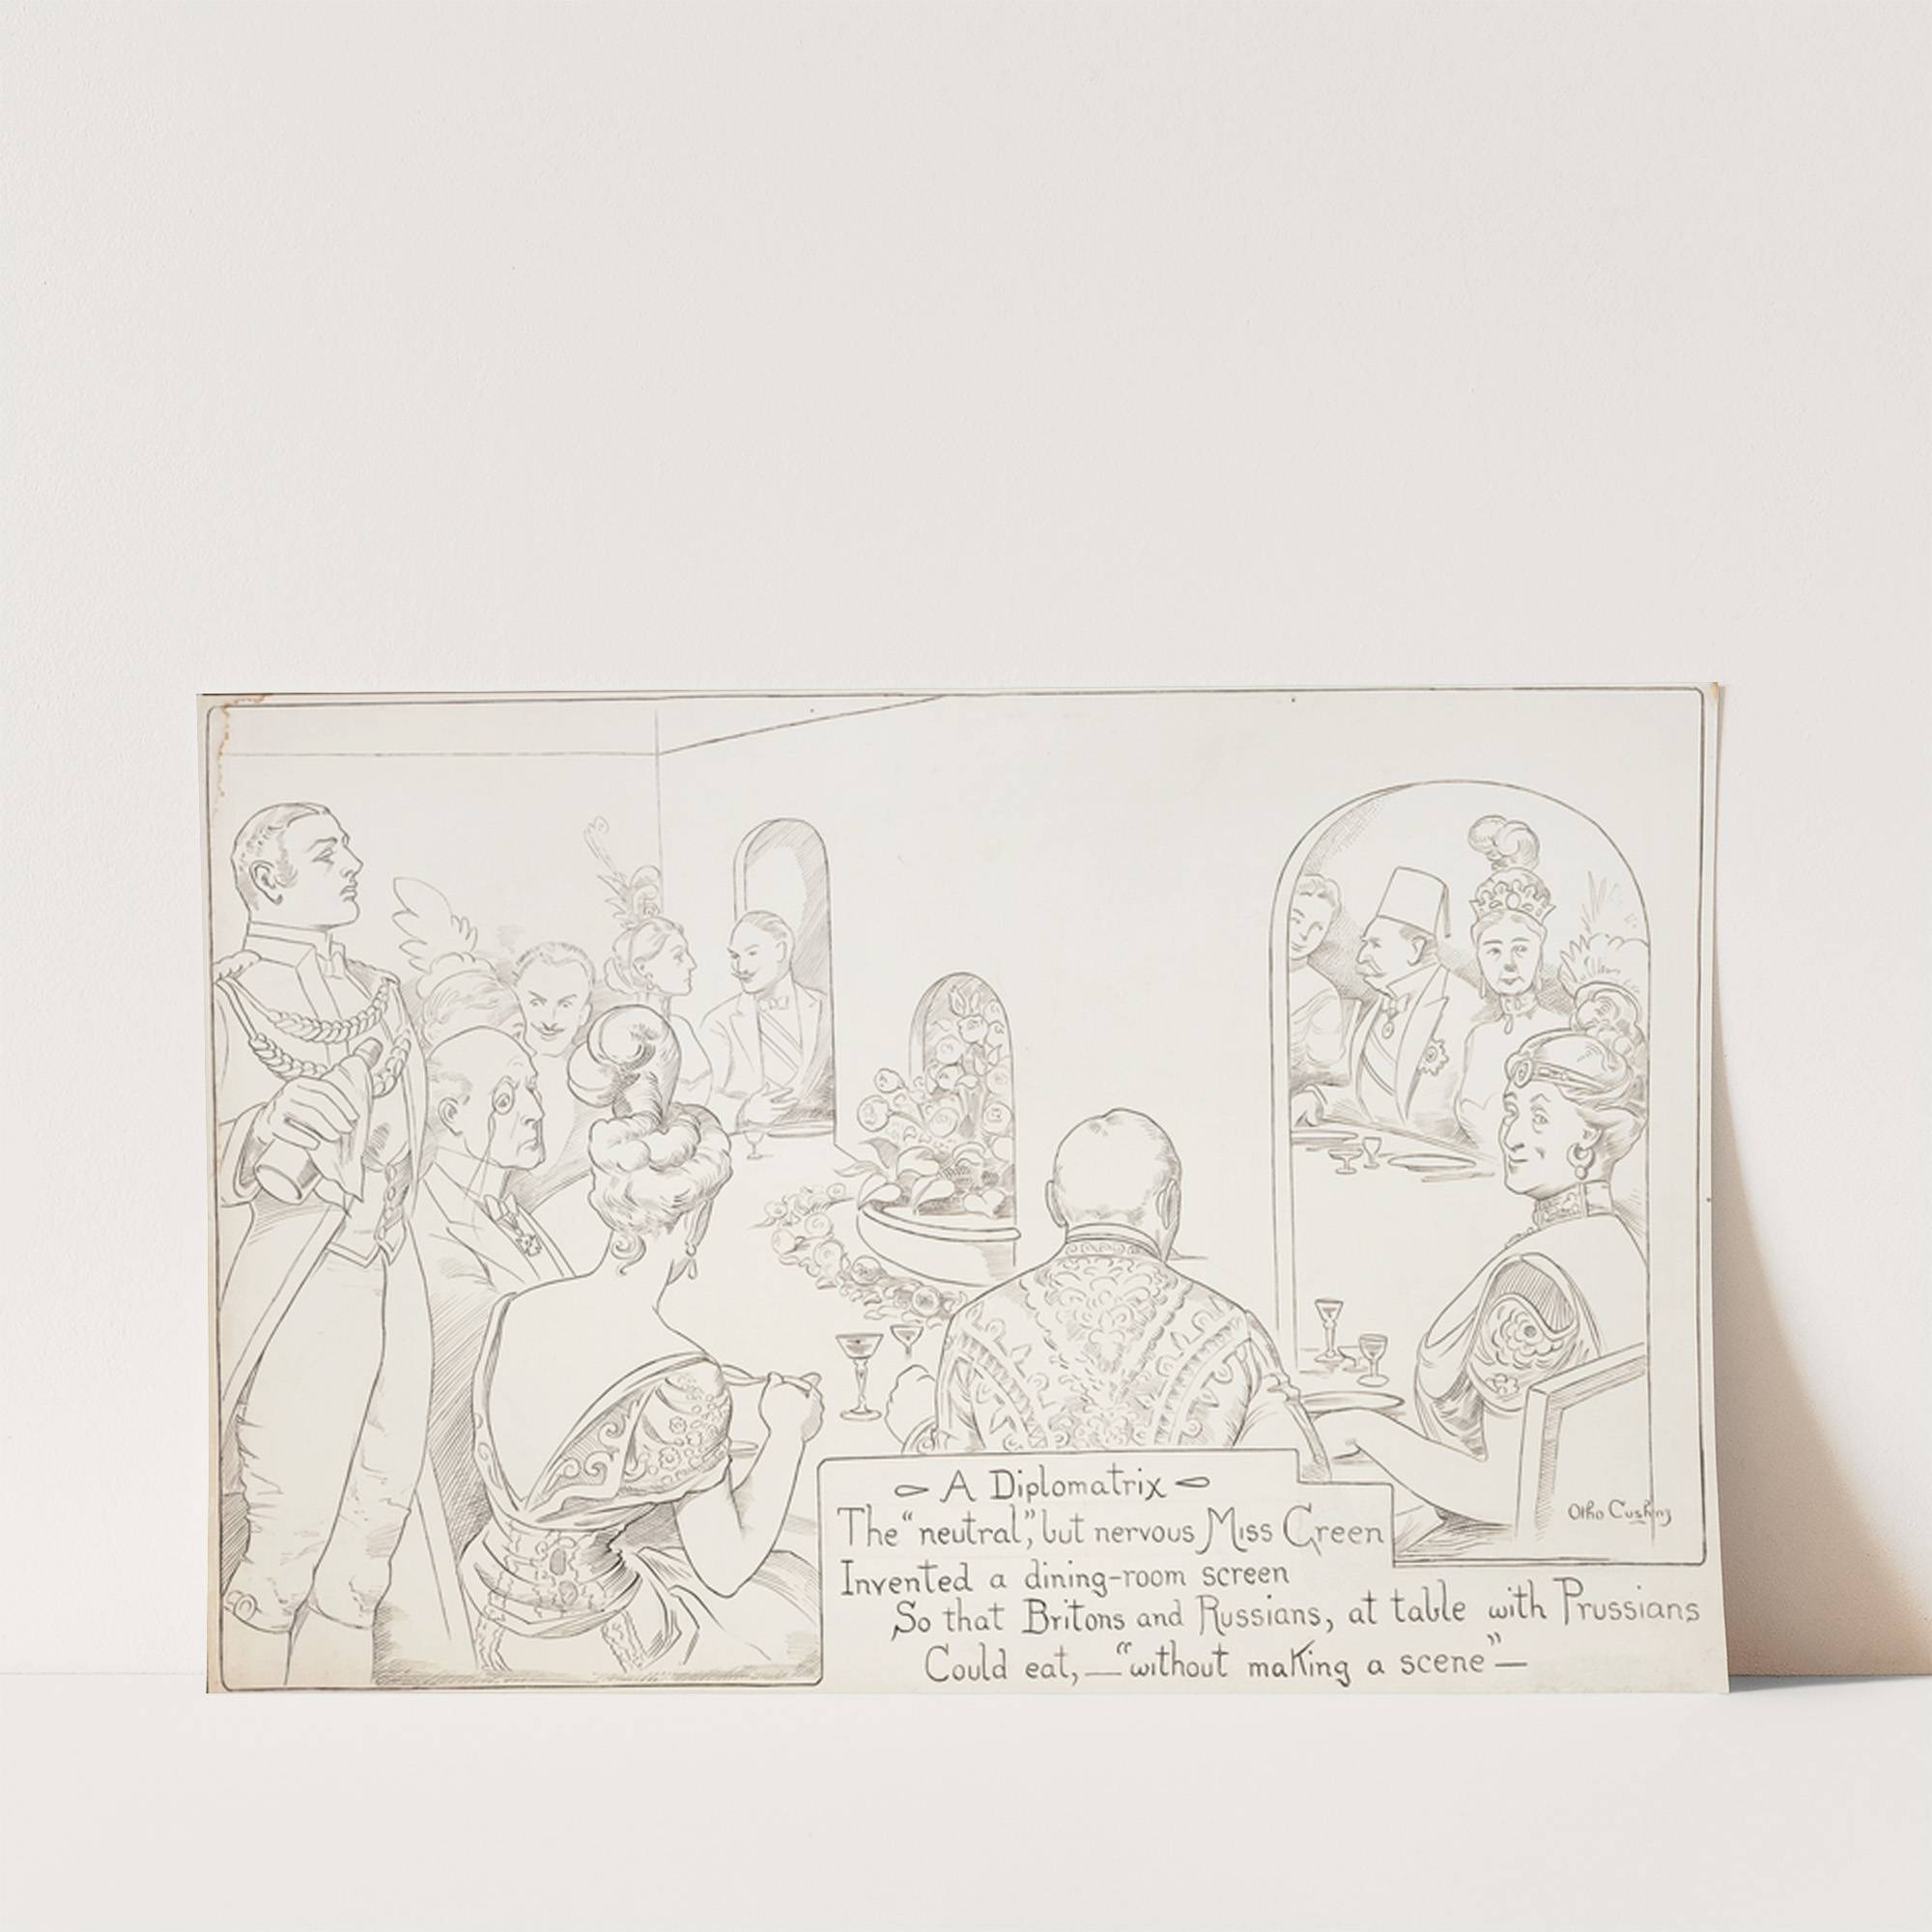 A Diplomatrix
The "neutral", but nervous Miss Green
Invented a dining-room screen
So that Britons and Russians, at table with Prussians
Could eat, — "without making a scene" —
Otho Cushing